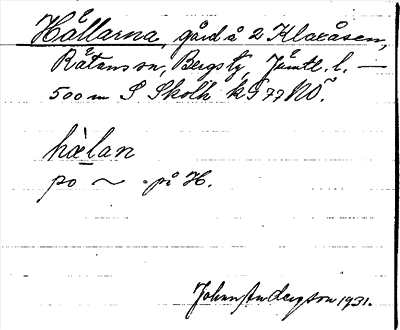 Hållarna, gård å 2 Klaxåsen,
Råtans sn, Bergs tg, Jämtl. l. —
500 m S Skolh k S 77 NÖ
hæ̀lan
po ~ på H.
Johan Anderson 1931.